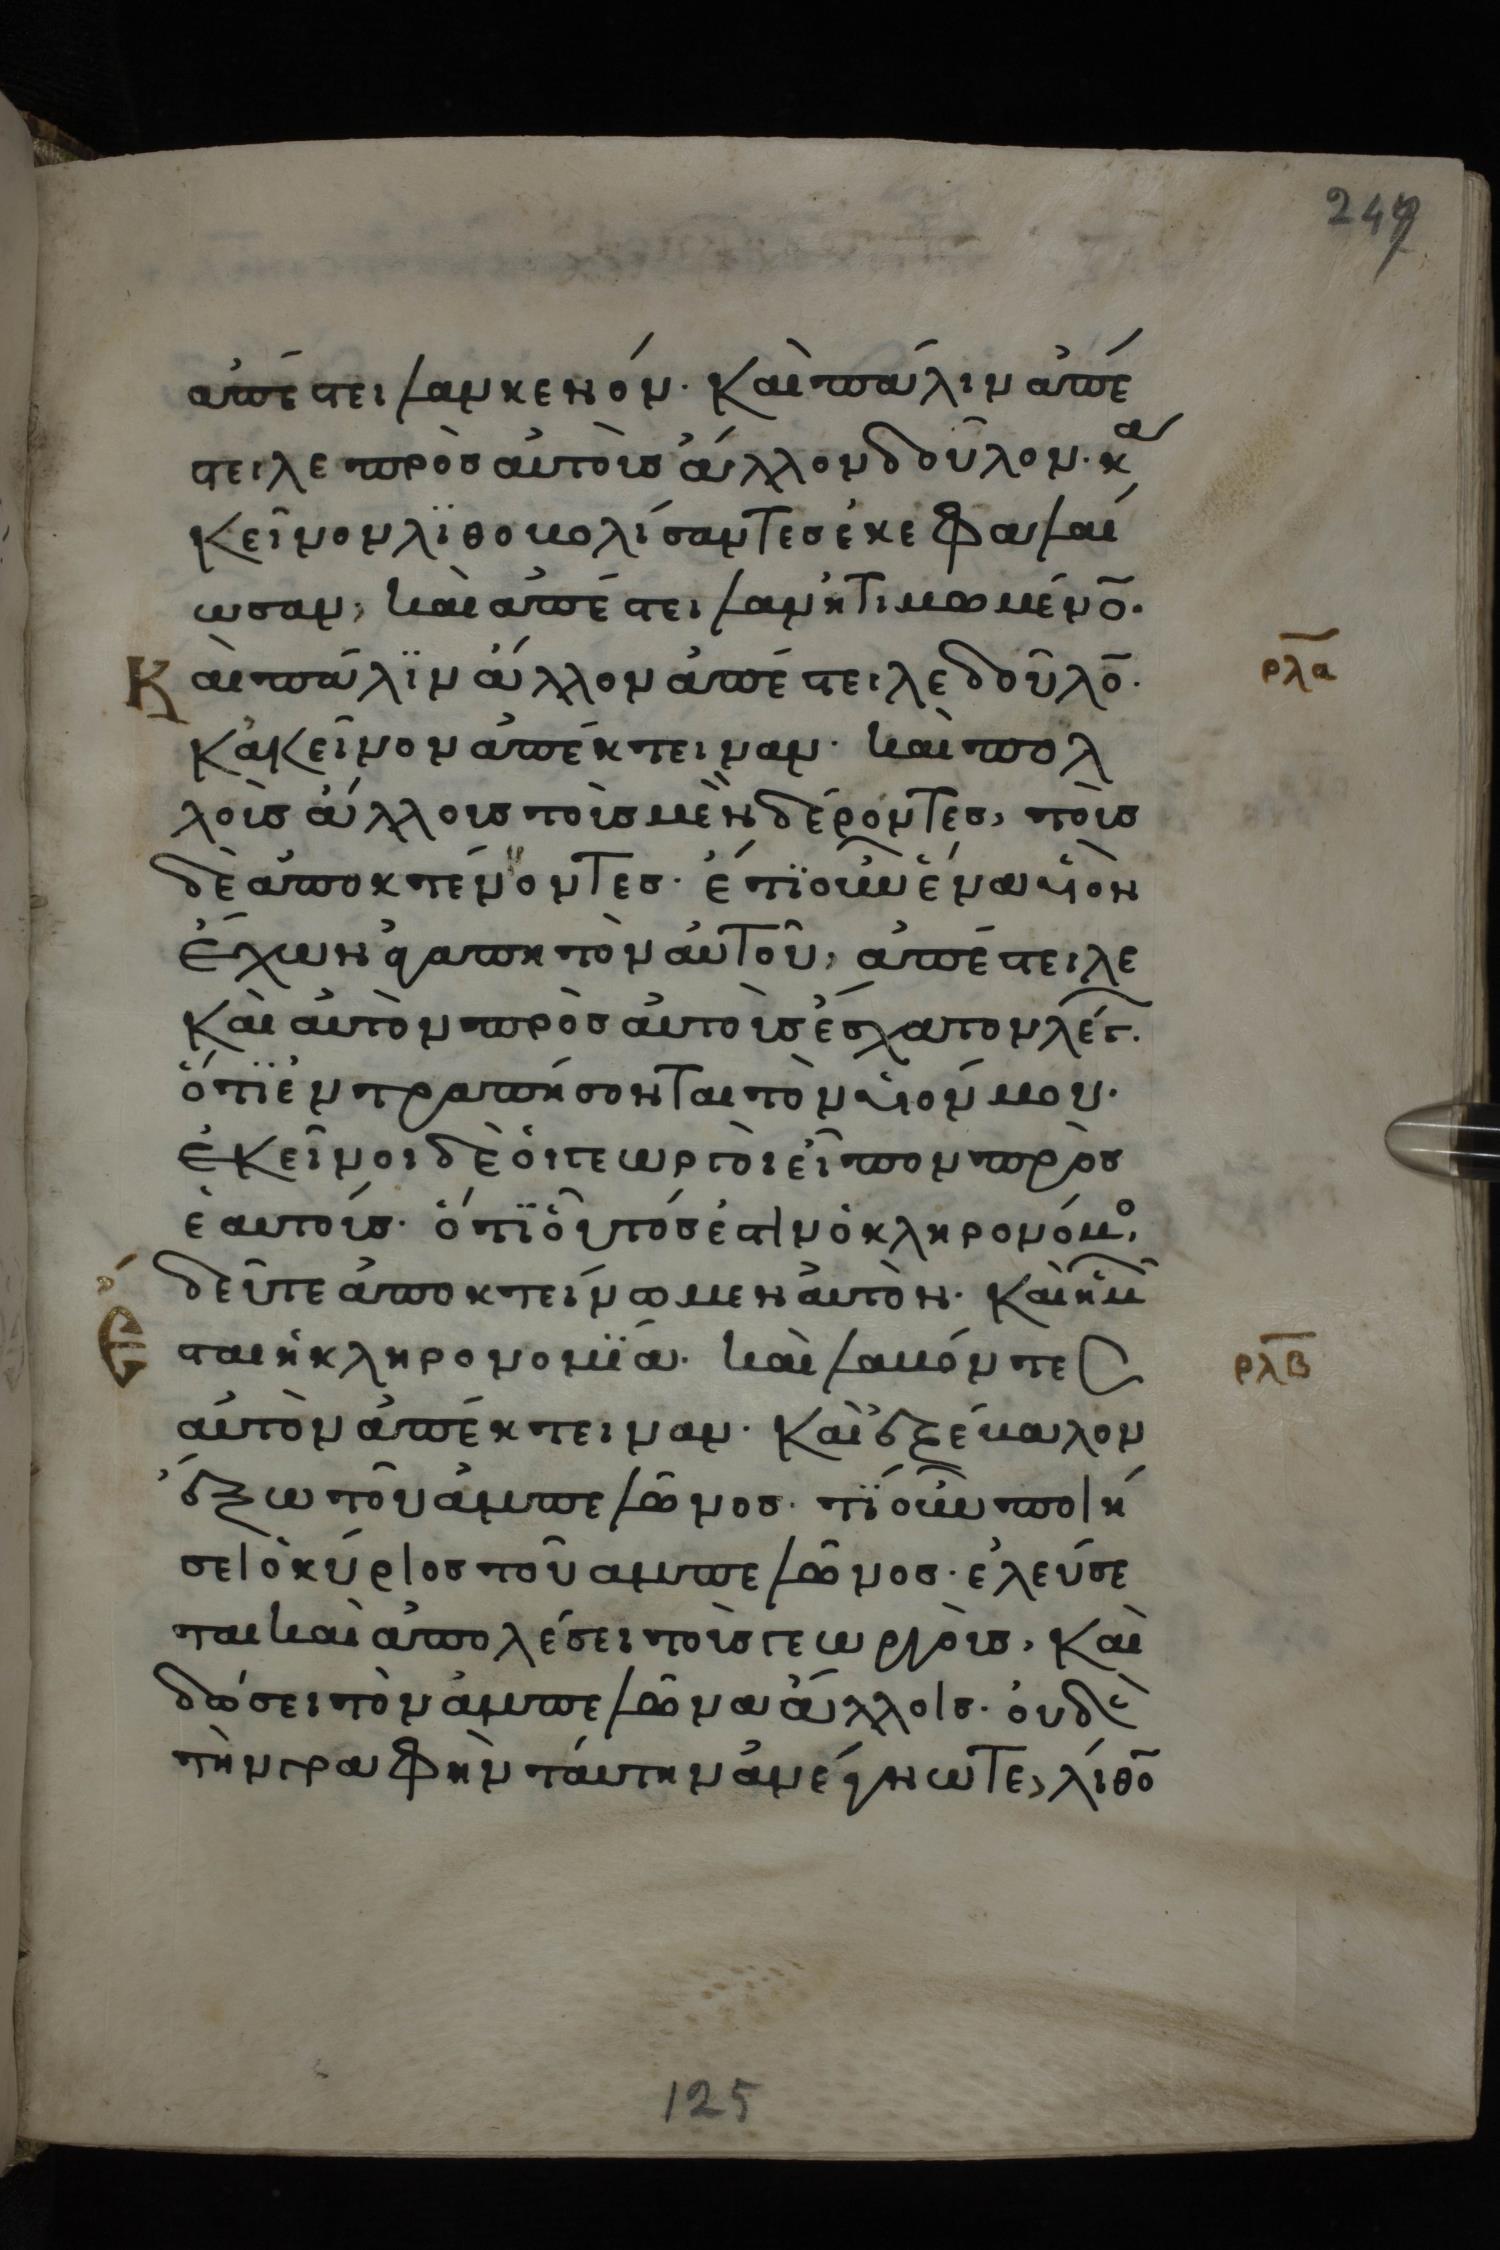 247
ἀπέστειλαν κενόν· καὶ πάλιν ἀπέ
στειλε πρὸς αὐτοὺς ἄλλον δοῦλον· κα
κεῖνον λϊθοβολίσαντες ἐκεφαλαι
ωσαν, καὶ ἀπέστειλαν ἠτιμωμένο̅·
Καὶ πάλϊν ἄλλον ἀπέστειλε δοῦλο̅·
ρλα
κἀκεῖνον ἀπέκτειναν· καὶ πολ
λοὺς ἄλλους τοὺς μὲν δέροντες, τοὺς
δὲ ἀποκτένοντες· ἔτϊ οὖν ἕνα υἱὸν
ἔχων ἀγαπητὸν αὐτοῦ, ἀπέστειλε
καὶ αὐτὸν πρὸς αὐτοὺς ἔσχατον λέγ·
ὅτϊ ἐντραπήσονται τὸν υἱόν μου·
ἐκεῖνοι δὲ ὁι γεωργοὶ εἶπον πρὸς
ἑαυτούς· ὅτϊ οὗτός ἐστιν ὁ κληρονόμο,
δεῦτε ἀποκτείνωμεν αὐτὸν· καὶ ἡμ
Ἔσται ἡ κληρονομϊά· καὶ λαβόντες
ρλβ
αὐτὸν ἀπέκτειναν· καὶ ἐξέβαλον
ἔξω τοῦ ἀμπελῶνος· τϊ οὖν ποιή
σει ὁ κύριος τοῦ αμπελῶνος· ἐλεύσε
ται καὶ ἀπολέσει τοὺς γεωργοὺς, καὶ
δώσει τὸν ἀμπελῶνα ἄλλοις· ὀυδὲ
τὴν γραφὴν ταύτην ἀνέγνωτε, λίθο̅
125